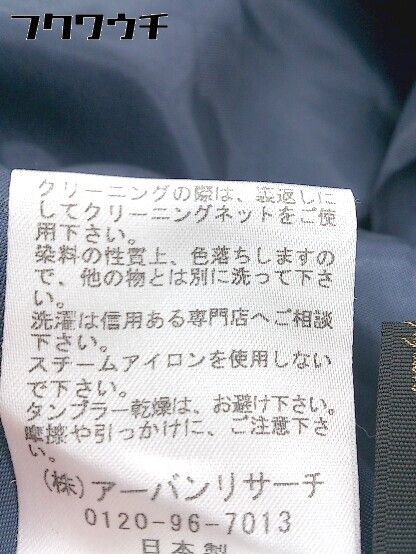 フクワウチ
クリーニングの際は、裏返しに
してクリーニングネットをご使
用下さい。
染料の性質上、色落ちしますの
で、他の物とは別に洗って下さ
い。
洗濯は信用ある専門店へご相談
下さい。
スチームアイロンを使用しない
で下さい。
タンブラー乾燥は、お避け下さい。
摩擦や引っかけに、ご注意下さ
い。
(株)アーバンリサーチ
0120-96-7013
日本製